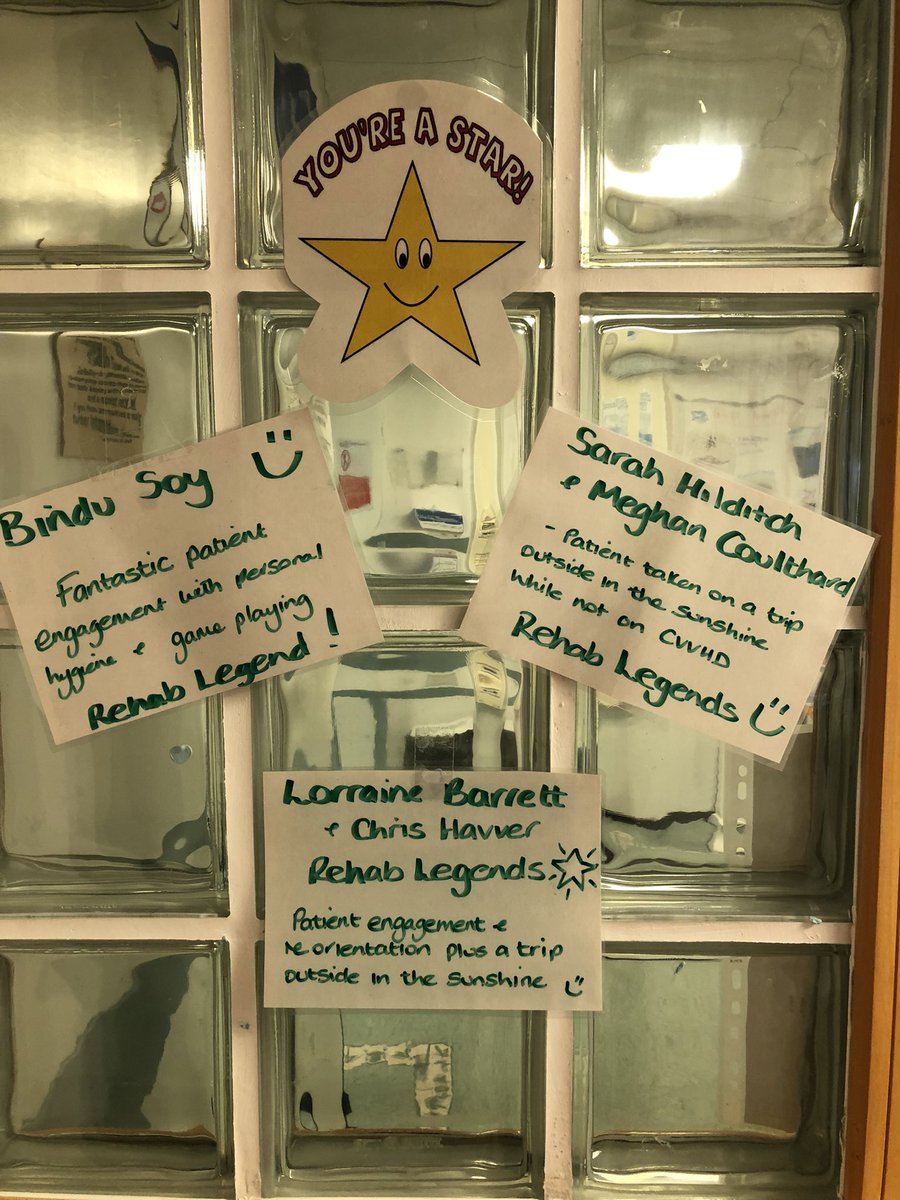 YOU'RE A STAR!
Bindu Soy
Fantastic patient
engagement with personal
hygiene & game playing
Rehab Legend!
Sarah Hilditch
& Meghan Coulthard
- Patient taken on a trip
outside in the sunshine
while not on CVVHD
Rehab Legends
Lorraine Barrett
& Chris Havver
Rehab Legends
Patient engagement &
reorientation plus a trip
outside in the sunshine